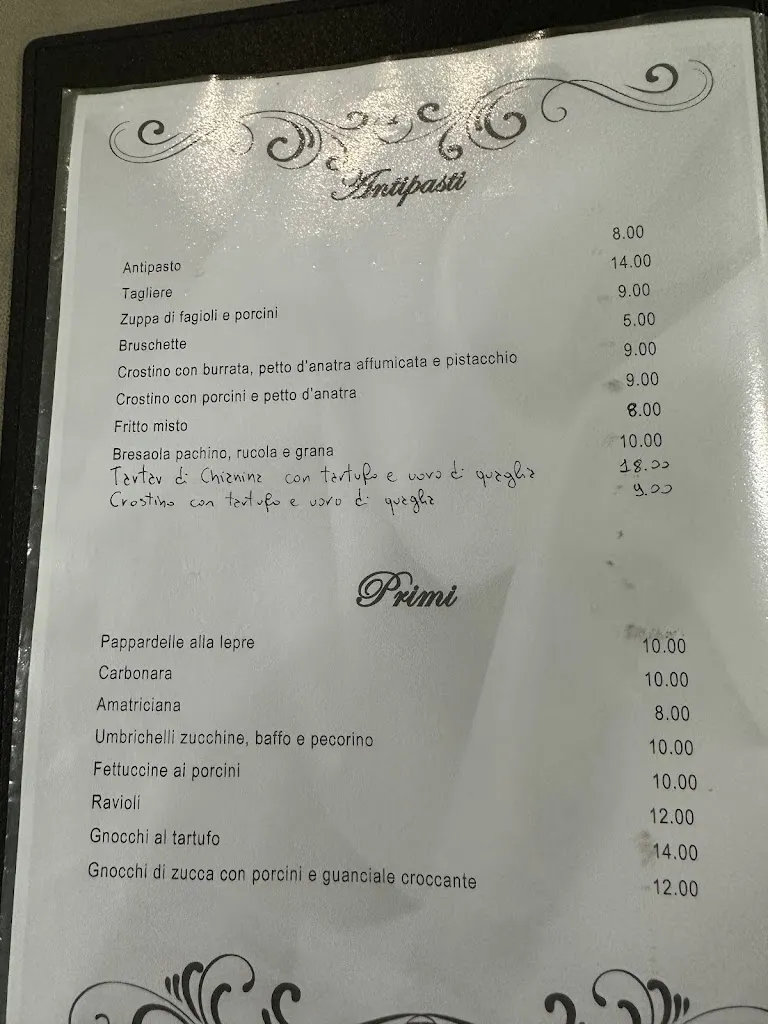 Antipasti
Antipasto 8.00
Tagliere 14.00
Zuppa di fagioli e porcini 9.00
Bruschette 5.00
Crostino con burrata, petto d'anatra affumicata e pistacchio 9.00
Crostino con porcini e petto d'anatra 9.00
Fritto misto 8.00
Bresaola pachino, rucola e grana 10.00
Tartar di Chianina con tartufo e uovo di quaglia 18.00
Crostino con tartufo e uovo di quaglia 9.00
Primi
Pappardelle alla lepre 10.00
Carbonara 10.00
Amatriciana 8.00
Umbrichelli zucchine, baffo e pecorino 10.00
Fettuccine ai porcini 10.00
Ravioli 12.00
Gnocchi al tartufo 14.00
Gnocchi di zucca con porcini e guanciale croccante 12.00